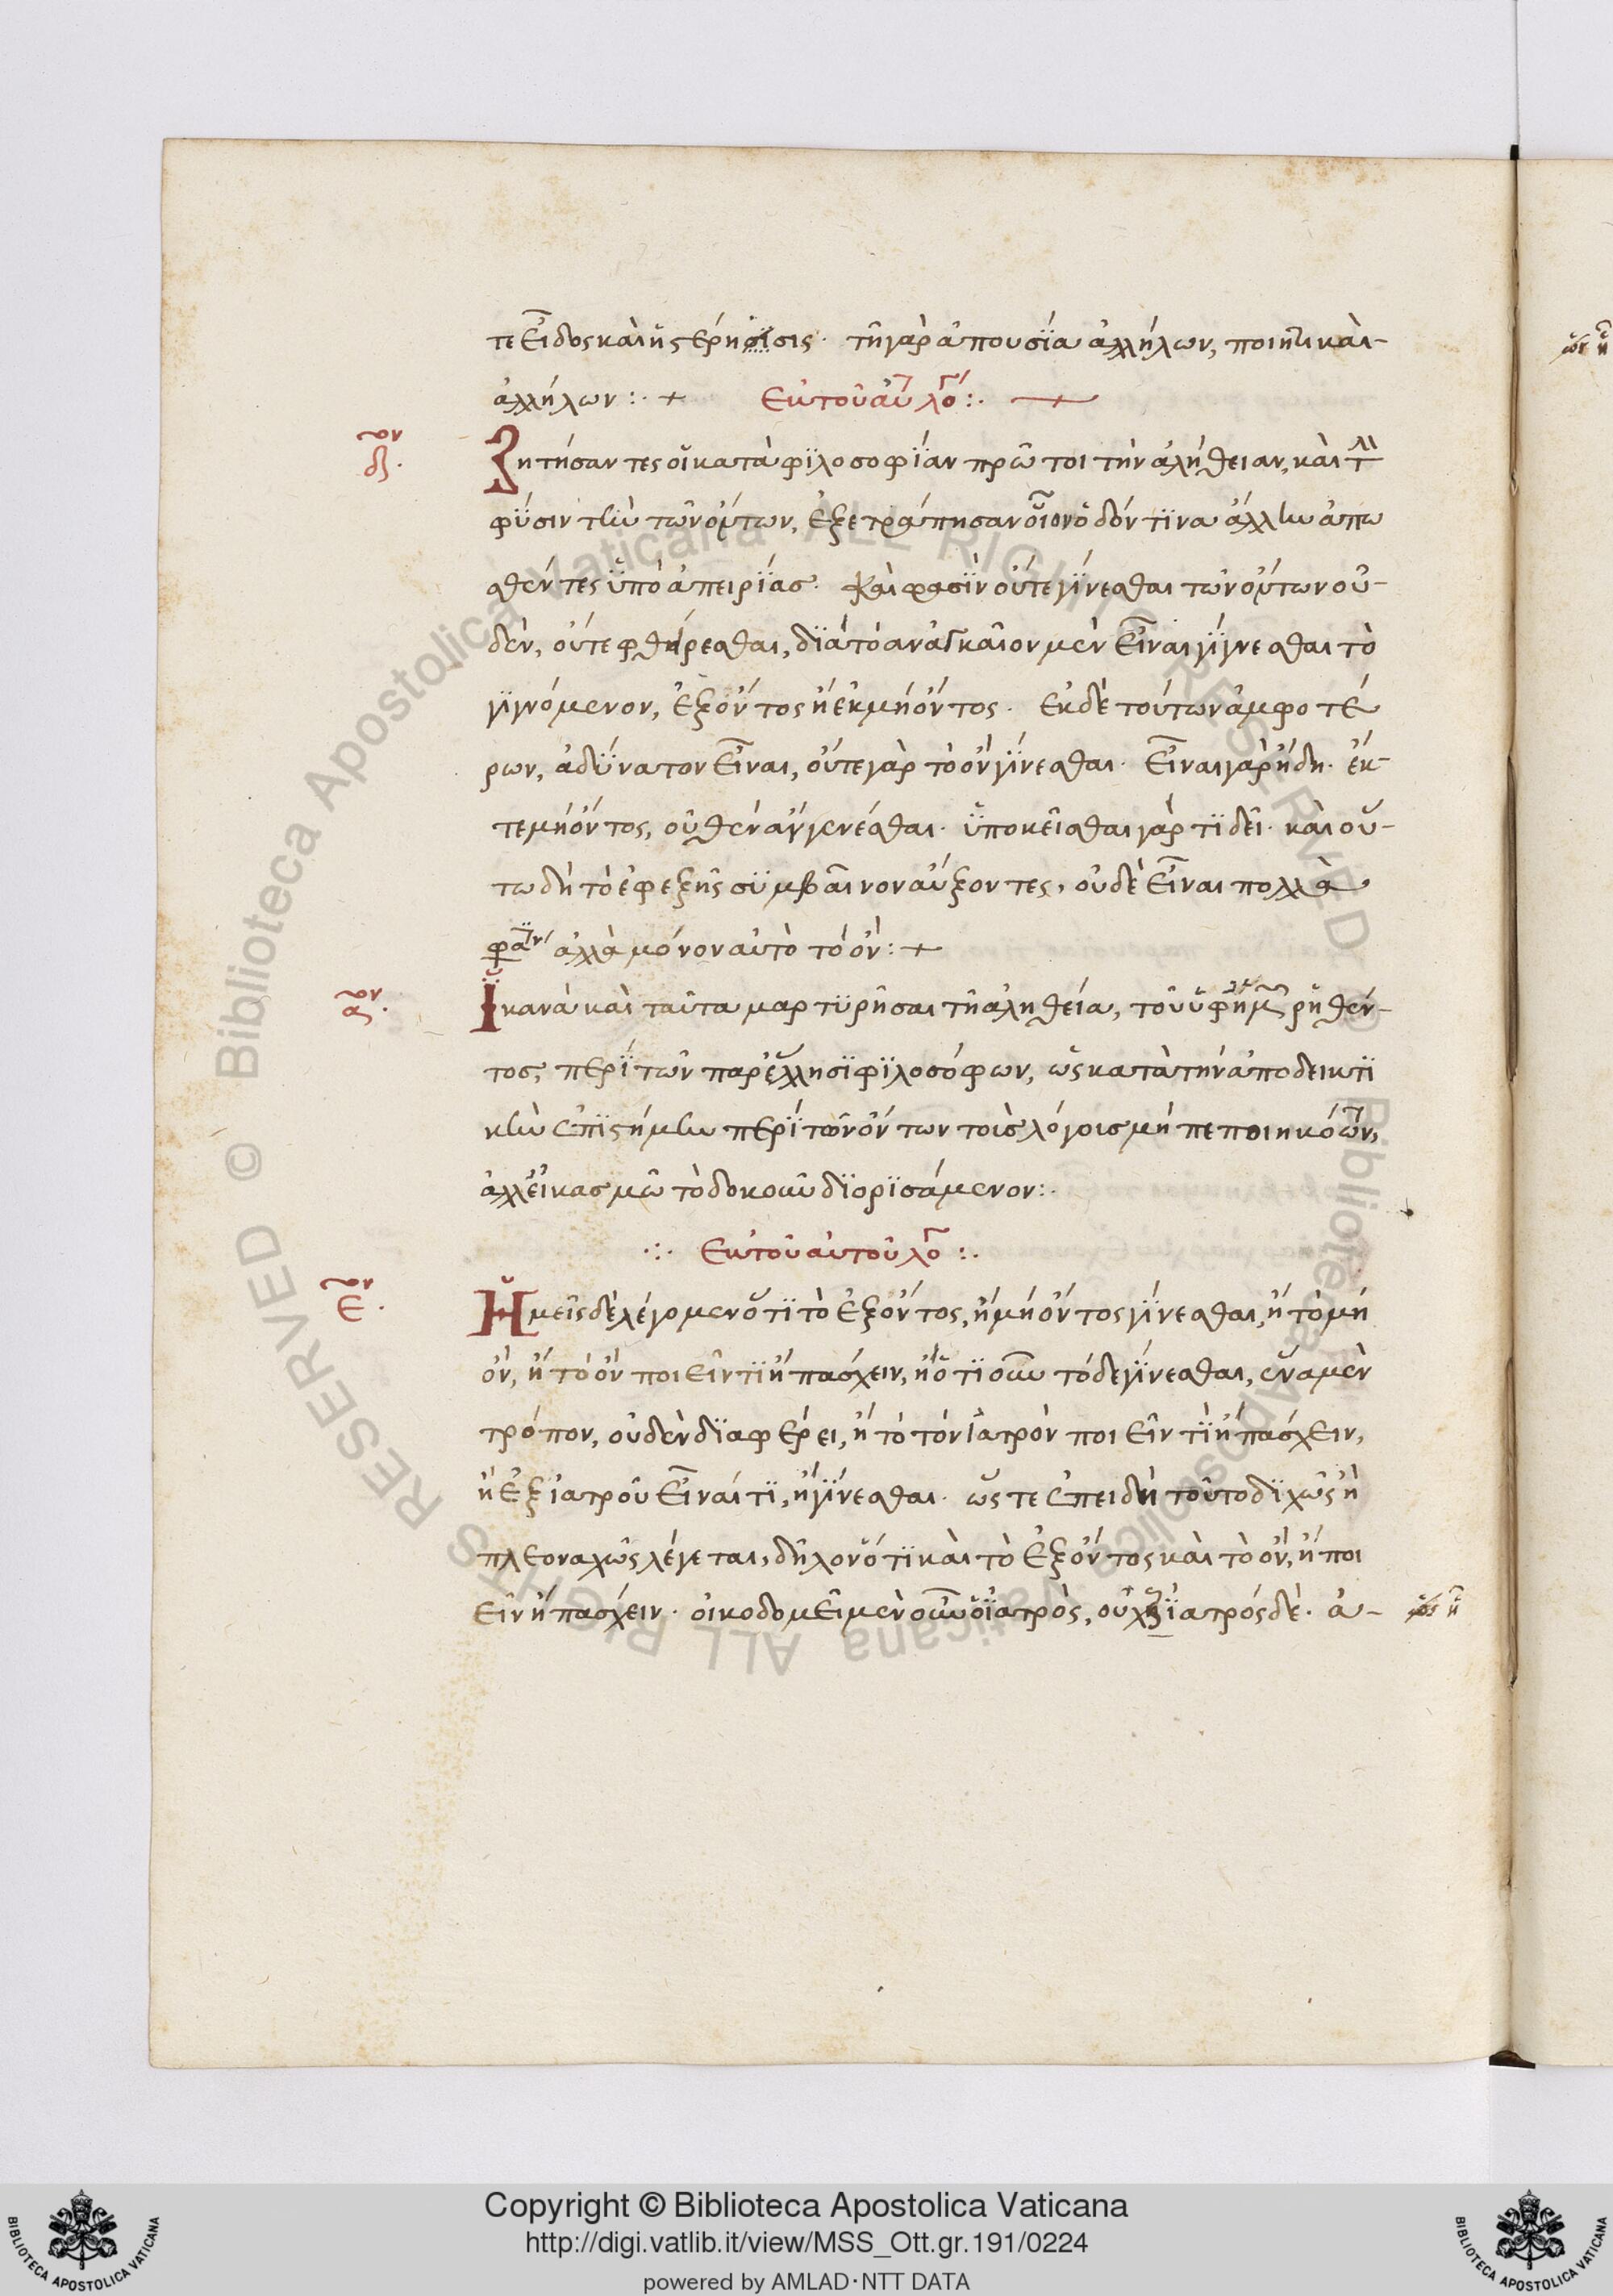 τε εἶδος καὶ ἡ στέρησις· τῆ γὰρ ἀπουσία ἀλλήλων, ποιητικαὶ
ἀλλήλων:· + Ἐκ τοῦ αὐτ λό:·
δ ον
Ζητήσαντες οἱ κατὰ φϊλοσοφΐαν πρῶτοι τὴν ἀλήθειαν, καὶ τὴν
φΰσιν τὴν τῶν ὄντων, ἐξετράπησαν οἷον ὁδόν τϊνα ἄλλην ἀπω
σθέντες ὑπὸ ἀπειρΐας· καὶ φασὶν οὔτε γΐνεσθαι τῶν ὄντων οὐ-
δὲν, οὔτε φθείρεσθαι, δϊὰ τὸ ἀναγκαῖον μὲν εἶναι γίγνεσθαι τὸ
γϊγνόμενον, ἐξ ὄντος ἢ ἐκ μὴ ὄντος· ἐκ δὲ τούτων ἀμφοτέ
ρων, ἀδΰνατον εἶναι, οὔτε γὰρ τὸ ὂν γΐνεσθαι· εἶναι γὰρ ἤδη· ἔκ-
τε μὴ ὄντος, οὐθὲν ἂν γενέσθαι· ὑποκεῖσθαι γὰρ τϊ δεῖ· καὶ οὕ-
τω δὴ τὸ ἐφεξῆς συμβαῖνον αὔξοντες, οὐδὲ εἶναι πολλὰ
φασὶν ἀλλὰ μόνον αὐτὸ τὸ ὄν:· +
α ον
Ἱκανὰ καὶ ταῦτα μαρτϋρῆσαι τῆ ἀληθεία, τοῦ ὑφ' ἡμῶν ῥηθέν-
τος, περὶ τῶν παρ' ἕλλησϊ φϊλοσόφων, ὡς κατὰ τὴν ἀποδεικτϊ
κὴν ἐπϊστήμην περὶ τῶν ὄντων τοὺς λόγους μὴ πεποιηκότων,
ἀλλ' εἰκασμῶ τὸ δοκοῦν δϊορϊσάμενον:·
·:· Ἐκ τοῦ αὐτοῦ λό:·
ε ον
Ἡμεῖς δὲ λέγομεν ὅτϊ τὸ ἐξ ὄντος, ἢ μὴ ὄντος γΐνεσθαι, ἢ τὸ μὴ
ὂν, ἢ τὸ ὂν ποιεῖν τϊ ἢ πάσχειν, ἢ ὅτϊοῦν τόδε γΐνεσθαι, ἕνα μὲν
τρόπον, οὐδὲν δϊαφέρει, ἢ τὸ τὸν ἰατρὸν ποιεῖν τϊ ἢ πάσχειν,
ἢ ἐξ ἰατροῦ εἶναί τϊ, ἢ γΐνεσθαι· ὥστε ἐπειδὴ τοῦτο δϊχῶς ἢ
πλεοναχῶς λέγεται, δῆλον ὅτϊ καὶ τὸ ἐξ ὄντος καὶ τὸ ὂν, ἢ ποι
εῖν ἢ πάσχειν· οἰκοδομεῖ μὲν οὖν ὁ ἰατρὸς, οὐχ ᾗ ἰατρός δὲ· ἀ-
Copyright © Biblioteca Apostolica Vaticana
http://digi.vatlib.it/view/MSS_Ott.gr.191/0224
powered by AMLAD·NTT DATA
BIBLIOTECA APOSTOLICA VATICANA
BIBLIOTECA APOSTOLICA VATICANA
© Biblioteca Apostolica Vaticana ALL RIGHTS RESERVED
© Biblioteca Apostolica Vaticana ALL RIGHTS RESERVED